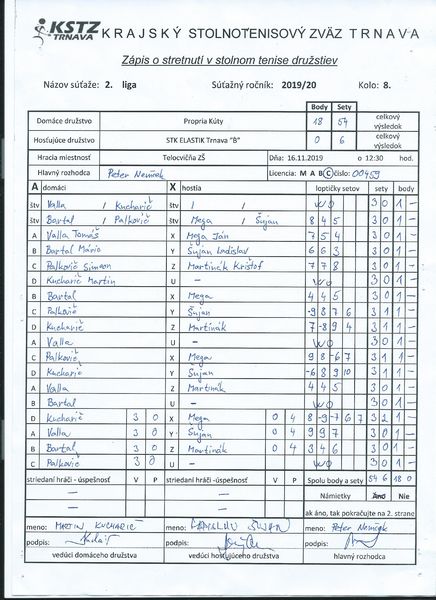 KSTZ TRNAVA KRAJSKÝ STOLNOTENISOVÝ ZVÄZ TRNAVA
Zápis o stretnutí v stolnom tenise družstiev
Názov súťaže: 2. liga Súťažný ročník: 2019/20 Kolo: 8.
Body Sety
Domáce družstvo Propria Kúty 18 54 celkový výsledok
Hosťujúce družstvo STK ELASTIK Trnava "B" 0 6 celkový výsledok
Hracia miestnosť Telocvičňa ZŠ Dňa: 16.11.2019 o 12:30 hod.
Hlavný rozhodca Peter Nemček Licencia: M A B C číslo: 00459
A domáci X hostia loptičky setov sety body
štv Valla / Kucharič štv / / WO 3 0 1 –
štv Bartal / Palkovič štv Mega / Šujan 8 4 5 3 0 1 –
A Valla Tomáš X Mega Ján 7 5 4 3 0 1 –
B Bartal Mário Y Šujan Ladislav 6 6 3 3 0 1 –
C Palkovič Simeon Z Martinák Krištof 7 7 8 3 0 1 –
D Kucharič Martin U – WO 3 0 1 –
B Bartal X Mega 4 4 5 3 0 1 –
C Palkovič Y Šujan -9 8 7 6 3 1 1 –
D Kucharič Z Martinák 7 -8 9 4 3 1 1 –
A Valla U – WO 3 0 1 –
C Palkovič X Mega 9 8 -6 7 3 1 1 –
D Kucharič Y Šujan -6 8 9 10 3 1 1 –
A Valla Z Martinák 4 4 5 3 0 1 –
B Bartal U – WO 3 0 1 –
D Kucharič 3 0 X Mega 0 4 8 -9 -7 6 7 3 2 1 –
A Valla 3 0 Y Šujan 0 4 9 9 7 3 0 1 –
B Bartal 3 0 Z Martinák 0 4 3 4 6 3 0 1 –
C Palkovič 3 0 U – WO 3 0 1 –
striedaní hráči - úspešnosť V P striedaní hráči - úspešnosť V P Spolu body a sety 54 6 18 0
– – Námietky Áno Nie
– – ak áno, tak pokračujte na 2. strane
meno: MARTIN KUCHARIČ meno: LADISLAV ŠUJAN meno: Peter Nemček
podpis: podpis: podpis:
vedúci domáceho družstva vedúci hosťujúceho družstva hlavný rozhodca